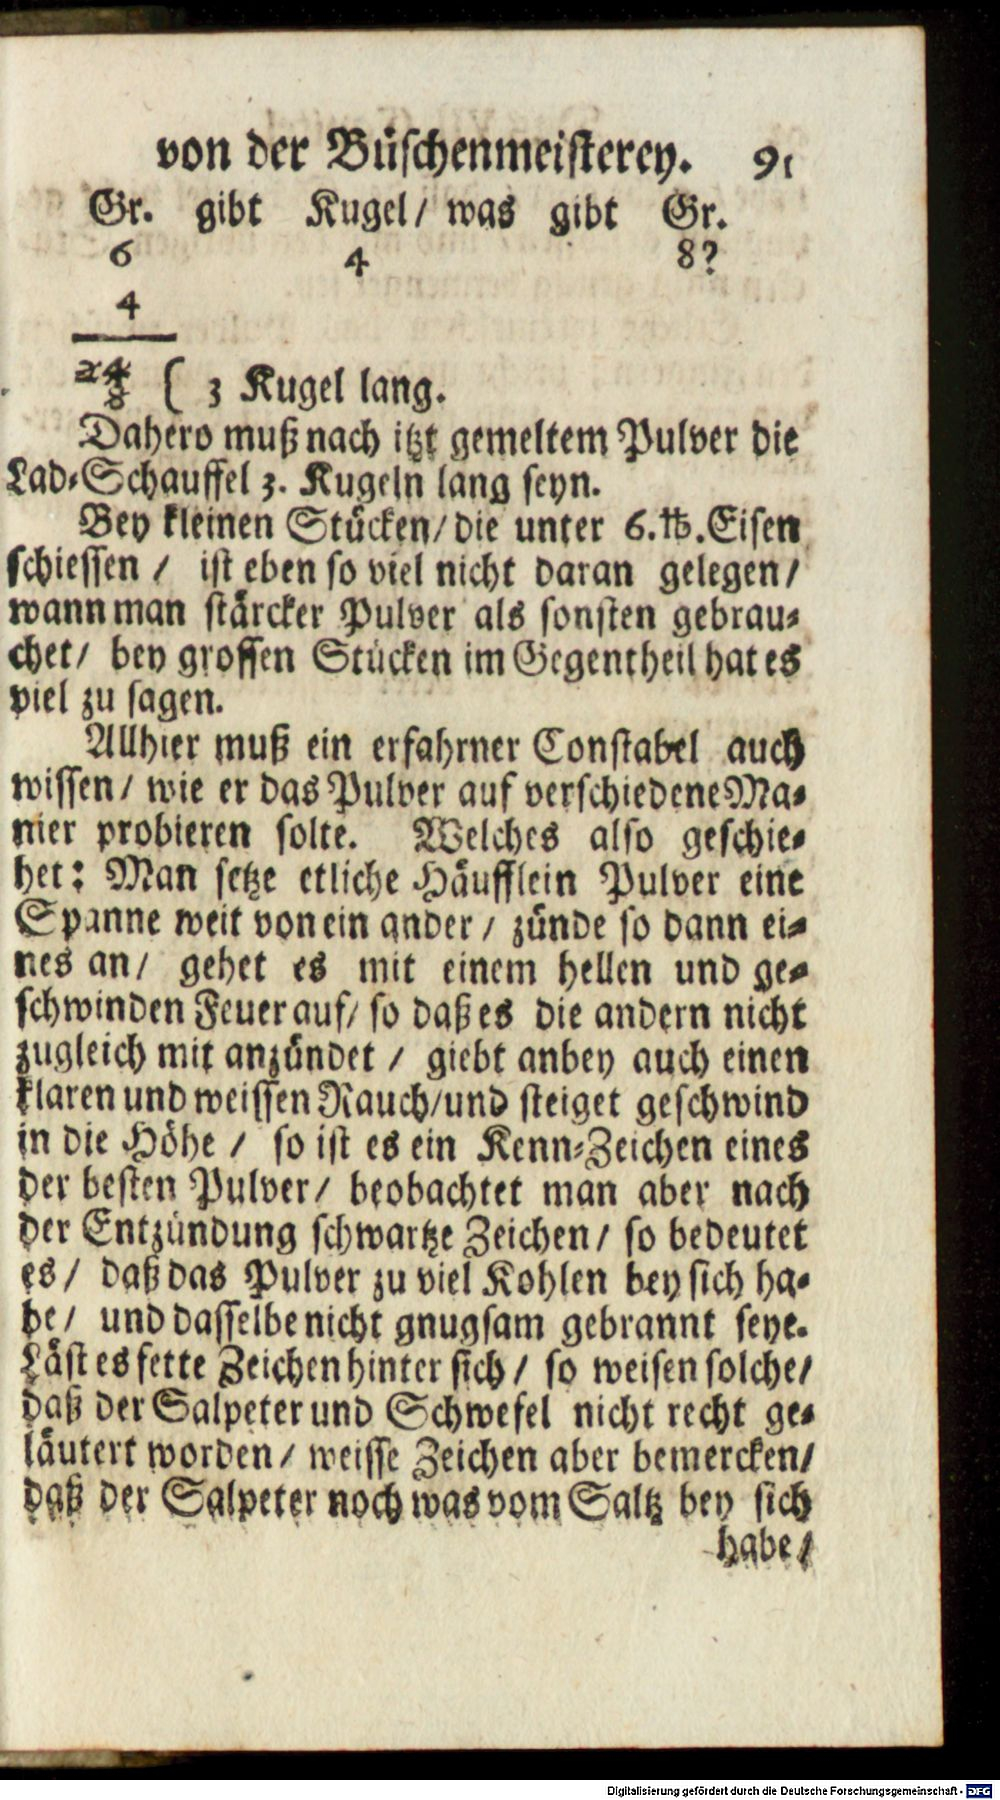 von der Büschenmeisterey. 91
Gr. gibt Kugel/ was gibt Gr.
6 4 8?
4
24
8 ( 3 Kugel lang.
Dahero muß nach itzt gemeltem Pulver die
Lad-Schauffel 3. Kugeln lang seyn.
Bey kleinen Stücken/ die unter 6. ℔. Eisen
schiessen / ist eben so viel nicht daran gelegen/
wann man stärcker Pulver als sonsten gebrau-
chet/ bey grossen Stücken im Gegentheil hat es
viel zu sagen.
Allhier muß ein erfahrner Constabel auch
wissen/ wie er das Pulver auf verschiedene Ma-
nier probieren solte. Welches also geschie-
het: Man setze etliche Häufflein Pulver eine
Spanne weit von ein ander / zünde so dann ei-
nes an/ gehet es mit einem hellen und ge-
schwinden Feuer auf/ so daß es die andern nicht
zugleich mit anzündet / giebt anbey auch einen
klaren und weissen Rauch/und steiget geschwind
in die Höhe / so ist es ein Kenn-Zeichen eines
der besten Pulver/ beobachtet man aber nach
der Entzündung schwartze Zeichen/ so bedeutet
es/ daß das Pulver zu viel Kohlen bey sich ha-
be/ und dasselbe nicht gnugsam gebrannt seye.
Läst es fette Zeichen hinter sich/ so weisen solche/
daß der Salpeter und Schwefel nicht recht ge-
läutert worden/ weisse Zeichen aber bemercken/
daß der Salpeter noch was vom Saltz bey sich
habe/
Digitalisierung gefördert durch die Deutsche Forschungsgemeinschaft - DFG